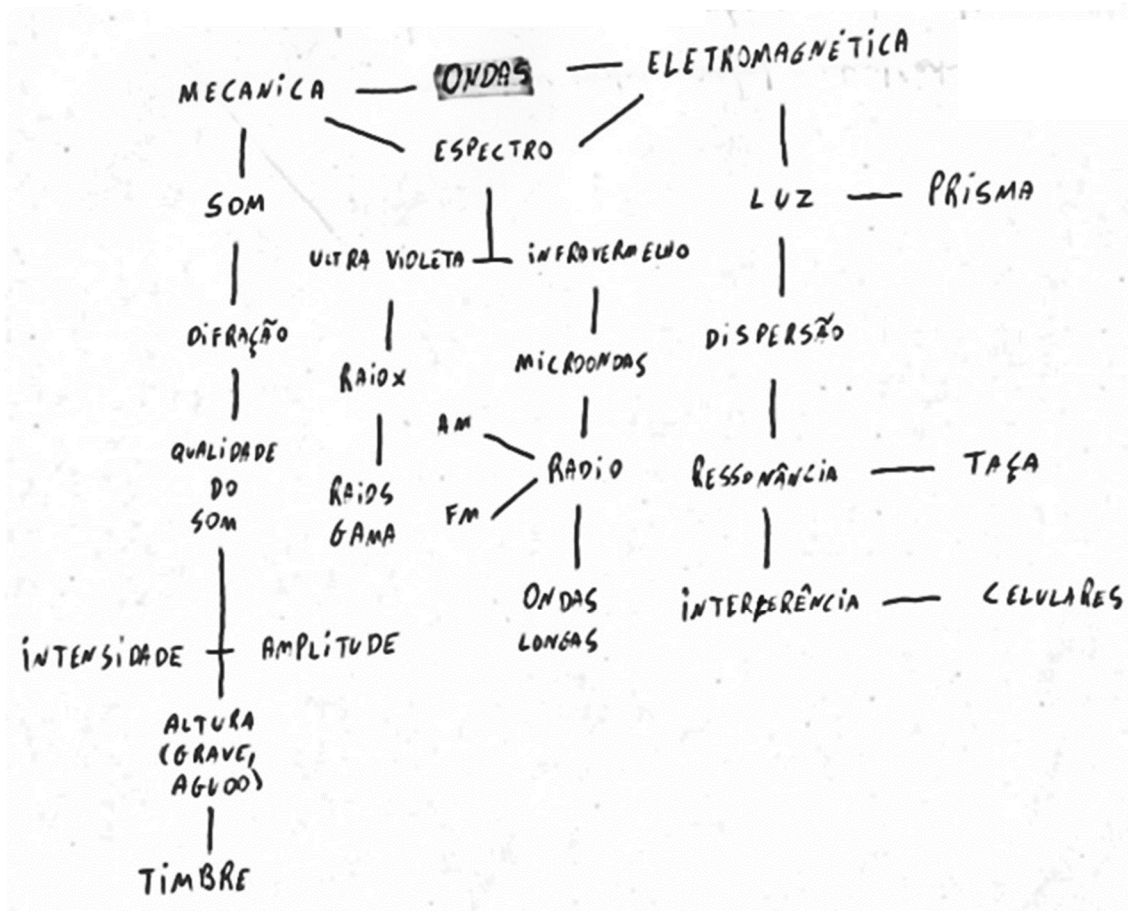 MECANICA
ONDAS
ELETROMAGNÉTICA
ESPECTRO
SOM
LUZ
PRISMA
ULTRA VIOLETA
INFRAVERMELHO
DIFRAÇÃO
DISPERSÃO
RAIO X
MICROONDAS
AM
QUALIDADE
DO
SOM
RADIO
RESSONÂNCIA
TAÇA
RAIOS
GAMA
FM
ONDAS
LONGAS
INTERFERÊNCIA
CELULARES
INTENSIDADE
AMPLITUDE
ALTURA
(GRAVE,
AGUDO)
TIMBRE